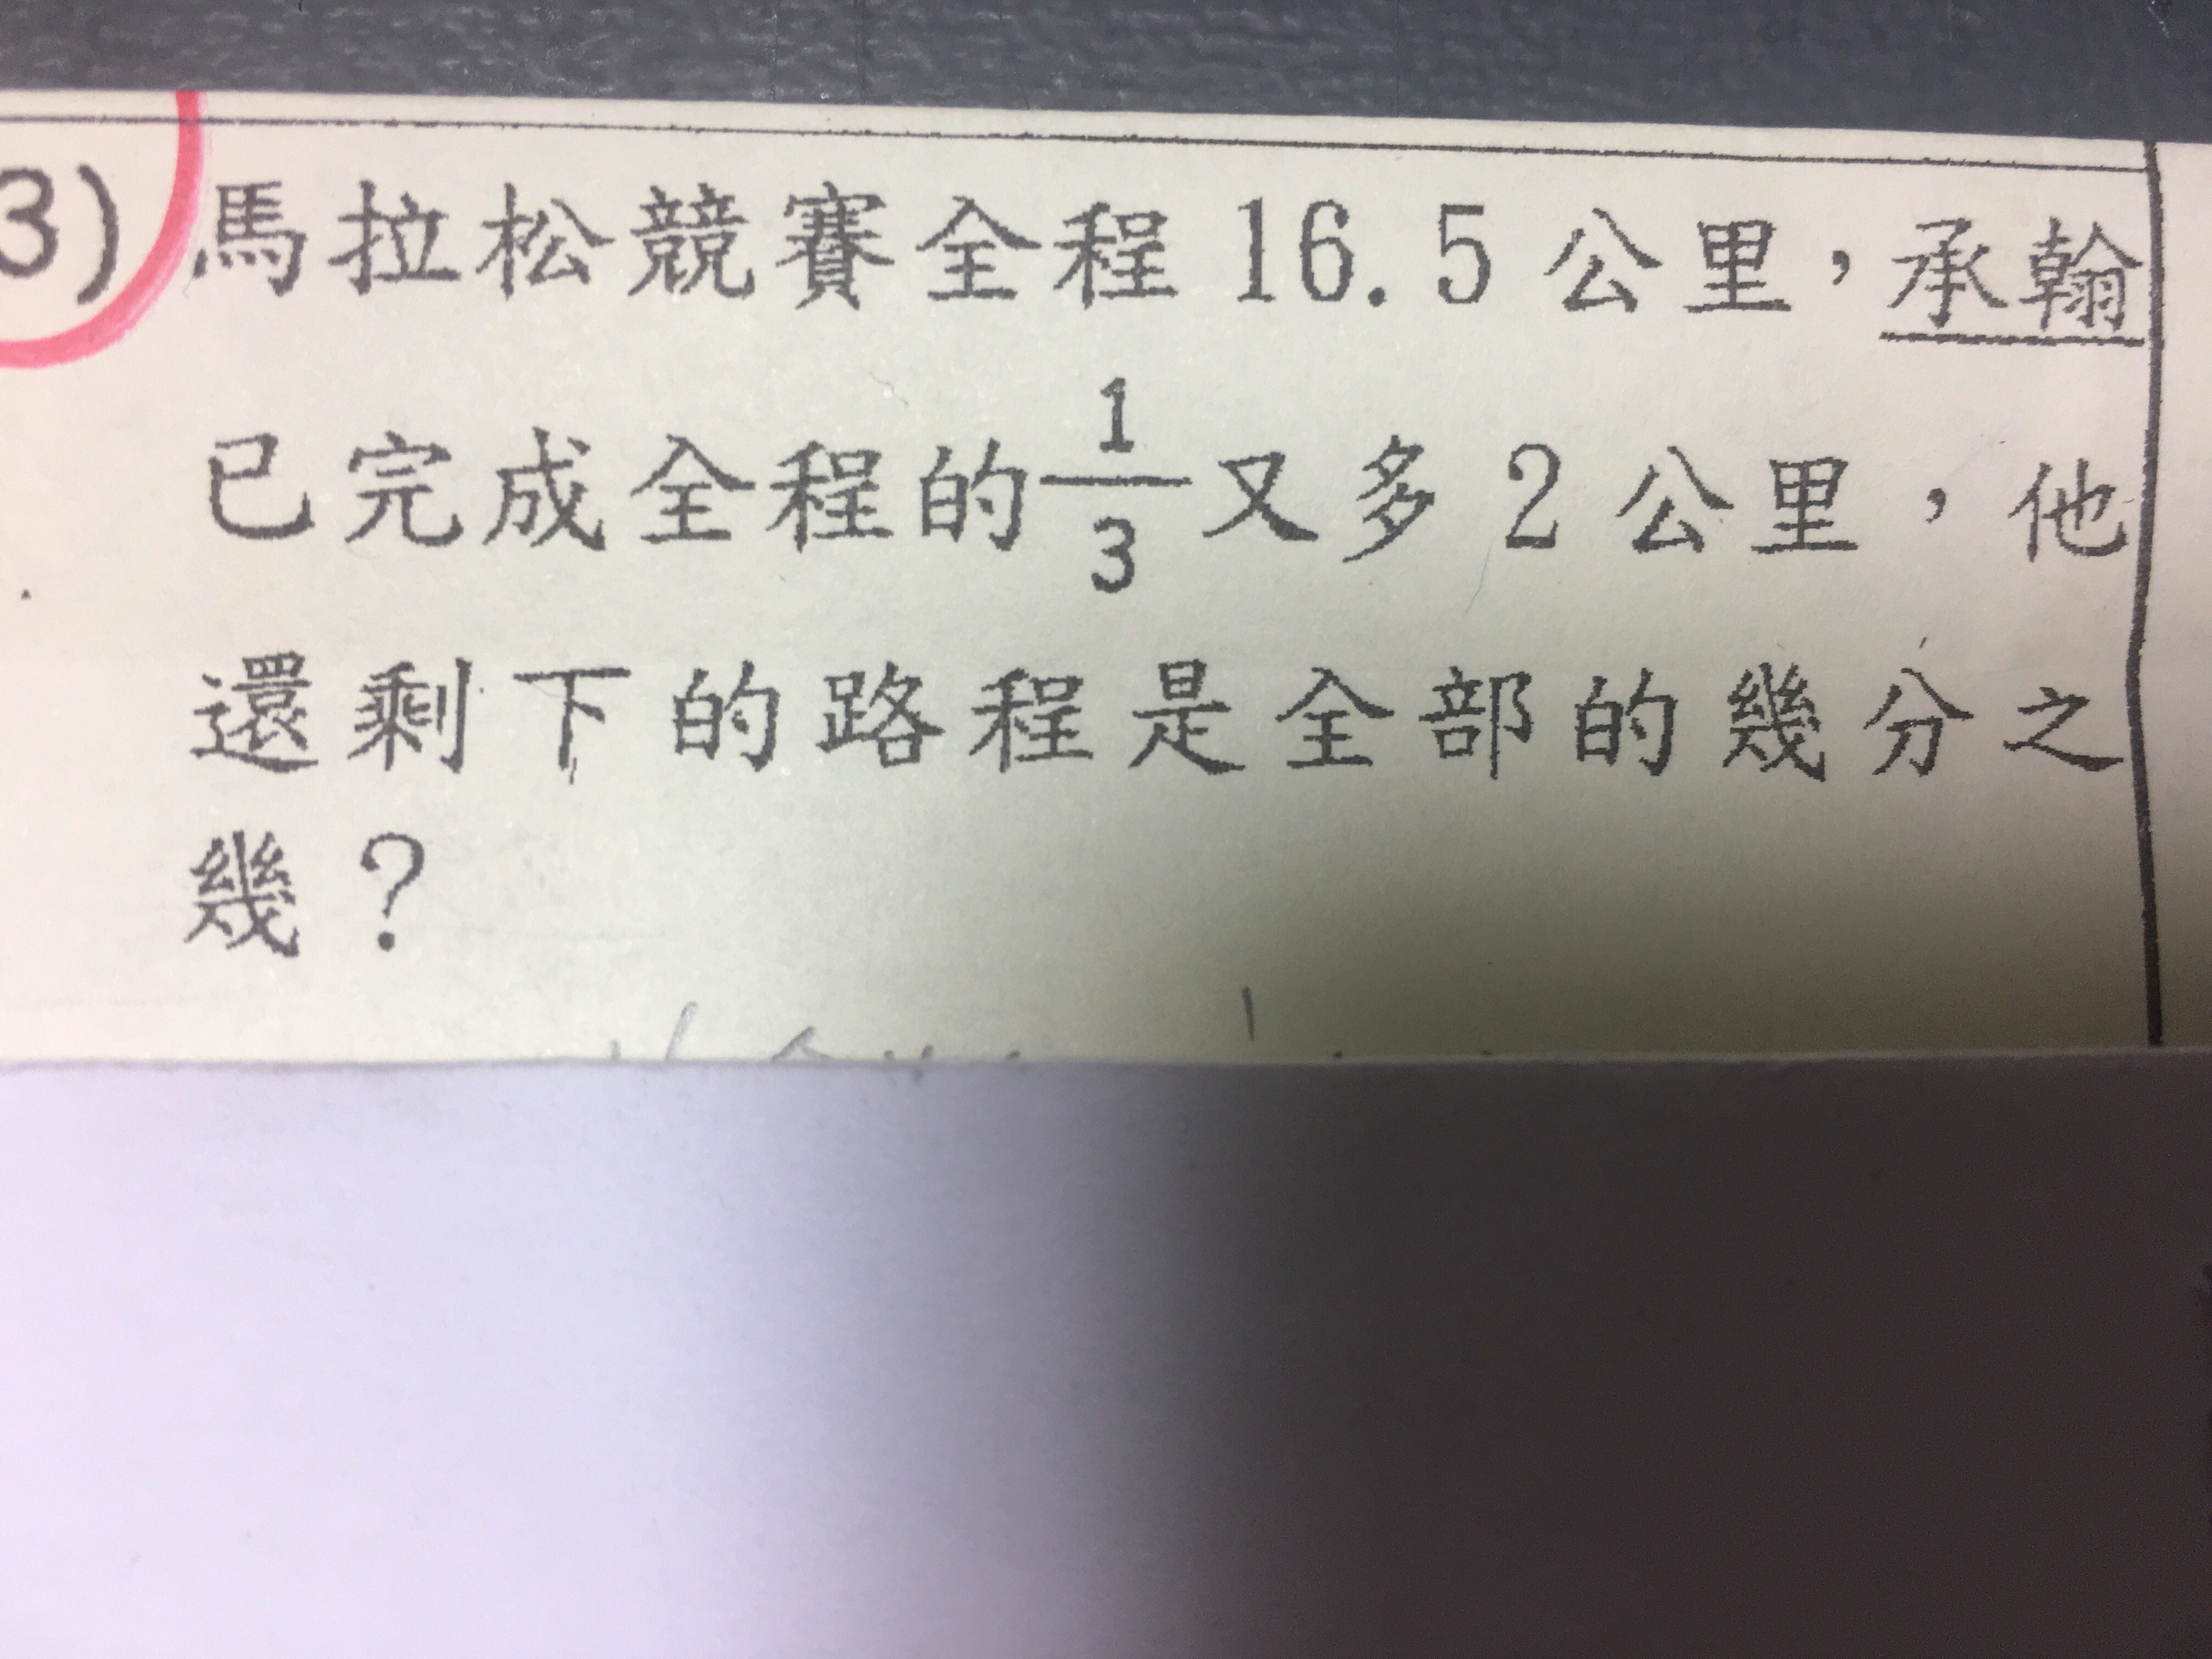 3) 馬拉松競賽全程 16.5 公里，承翰
已完成全程的 1/3 又多 2 公里，他
還剩下的路程是全部的幾分之
幾？